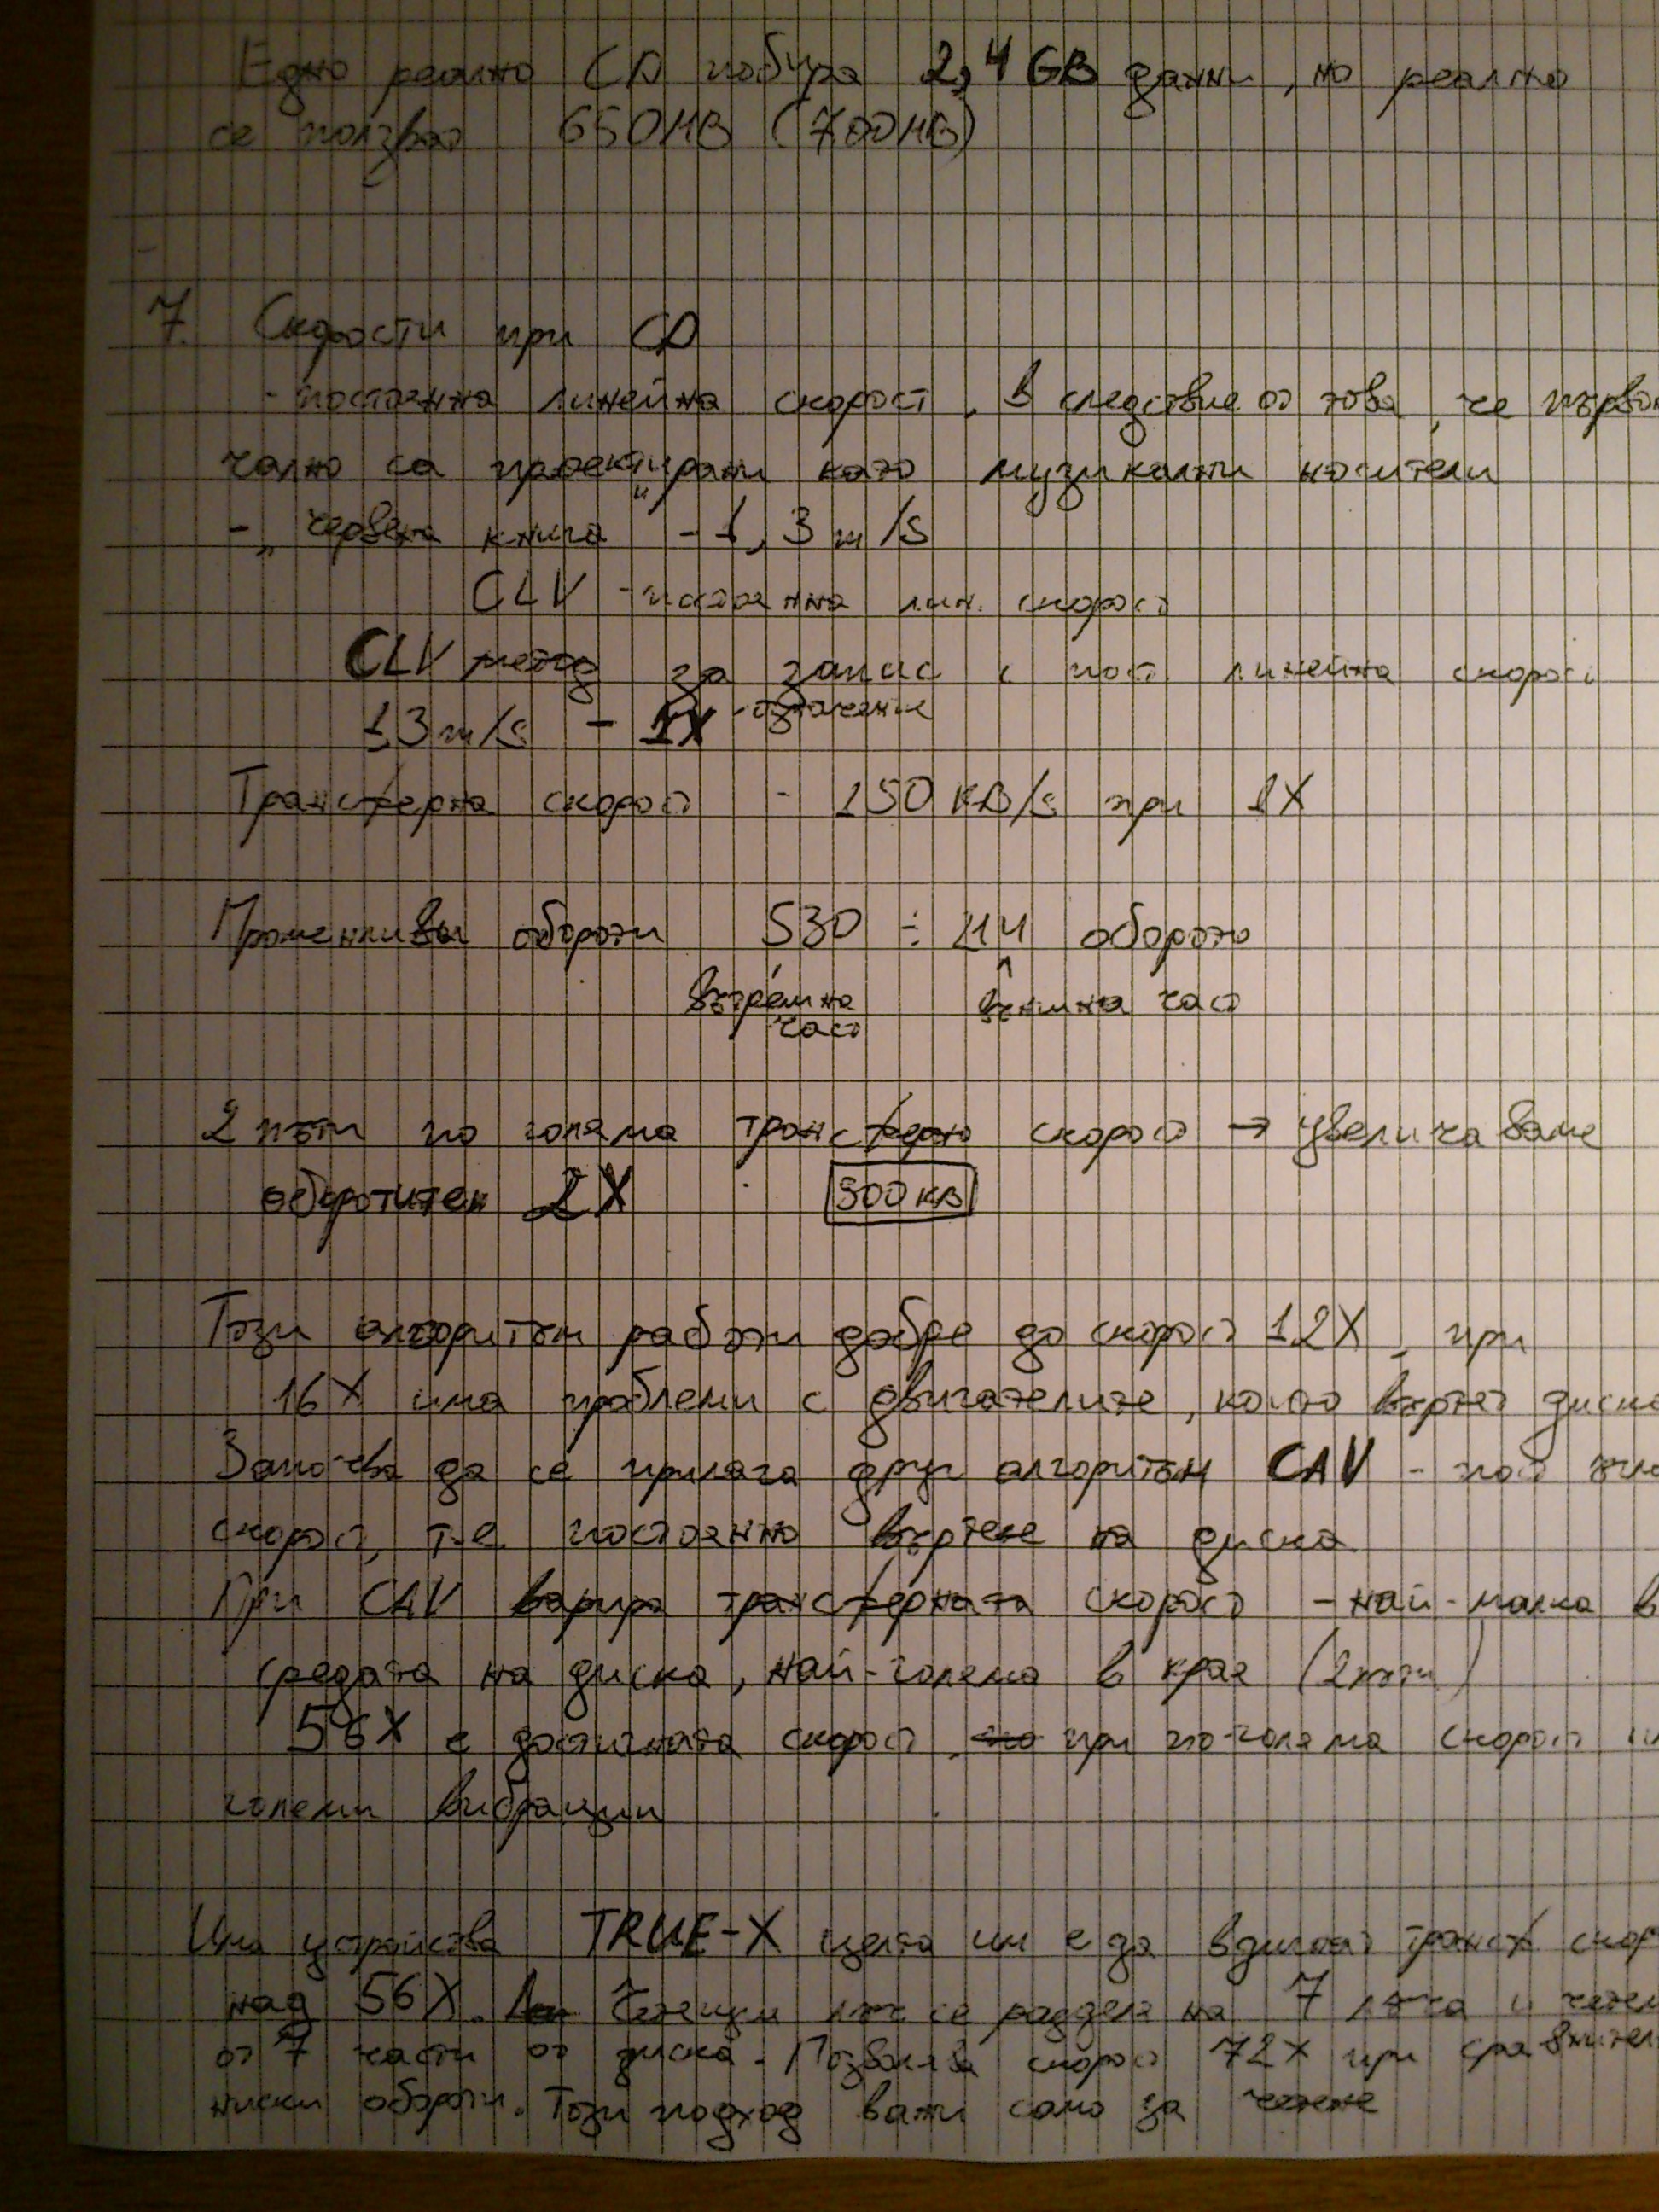 Едно реално CD побира 2,4 GB данни, но реално
се ползват 650MB (700MB)
7. Скорости при CD
- постоянна линейна скорост, в следствие от това, че първон
чално са проектирани като музикални носители
- „червена книга" - 1,3 m/s
CLV - постоянна лин. скорост
CLV метод за запис с пост. линейна скорост
1,3 m/s - 1X - означение
Трансферна скорост - 150 KB/s при 1X
Променливи обороти 530 ÷ 214 оборота
вътрешна външна част
част
2 пъти по голяма трансферна скорост → увеличаваме
оборотите 2X 300 KB
Този алгоритъм работи добре до скорост 12X, при
16X има проблеми с двигателите, които въртят диска
Започва да се прилага друг алгоритъм CAV - пост
скорост, т.е. постоянно въртене на диска
При CAV варира трансферната скорост - най-малка в
средата на диска, най-голяма в края (2 пъти)
56X е достигната скорост, при по-голяма скорост
големи вибрации
Има устройства TRUE-X целта им е да вдигнат трансф скор
над 56X. Четещия лъч се разделя на 7 лъча и четем
от 7 части от диска. Позволява скорост 72X при сравнител
ниски обороти. Този подход важи само за четене